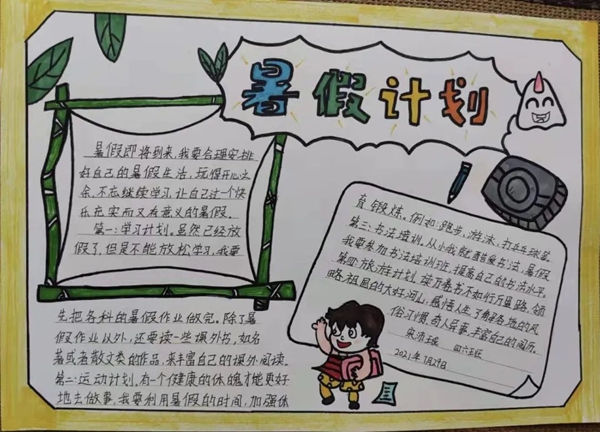 暑假计划
暑假即将到来,我要合理安排
好自己的暑假生活,玩得开心之
余,不忘继续学习,让自己过一个快
乐充实而又有意义的暑假。
第一:学习计划。虽然已经放
假了,但是不能放松学习,我要
先把各科的暑假作业做完。除了暑
假作业以外,还要读一些课外书,如名
著或者散文类的作品,来丰富自己的课外阅读。
第二:运动计划。有一个健康的体魄才能更好
地去做事,我要利用暑假的时间,加强体
育锻炼。例如:跑步、游泳、打乒乓球等
第三:书法培训。从小我就酷爱书法,暑假
我要参加书法培训班,提高自己的书法水平。
第四:旅游计划。读万卷书不如行万里路,领
略祖国的大好河山,感悟人生,了解各地的风
俗习惯,奇人异事,丰富自己的阅历。
四六班
2021年7月29日